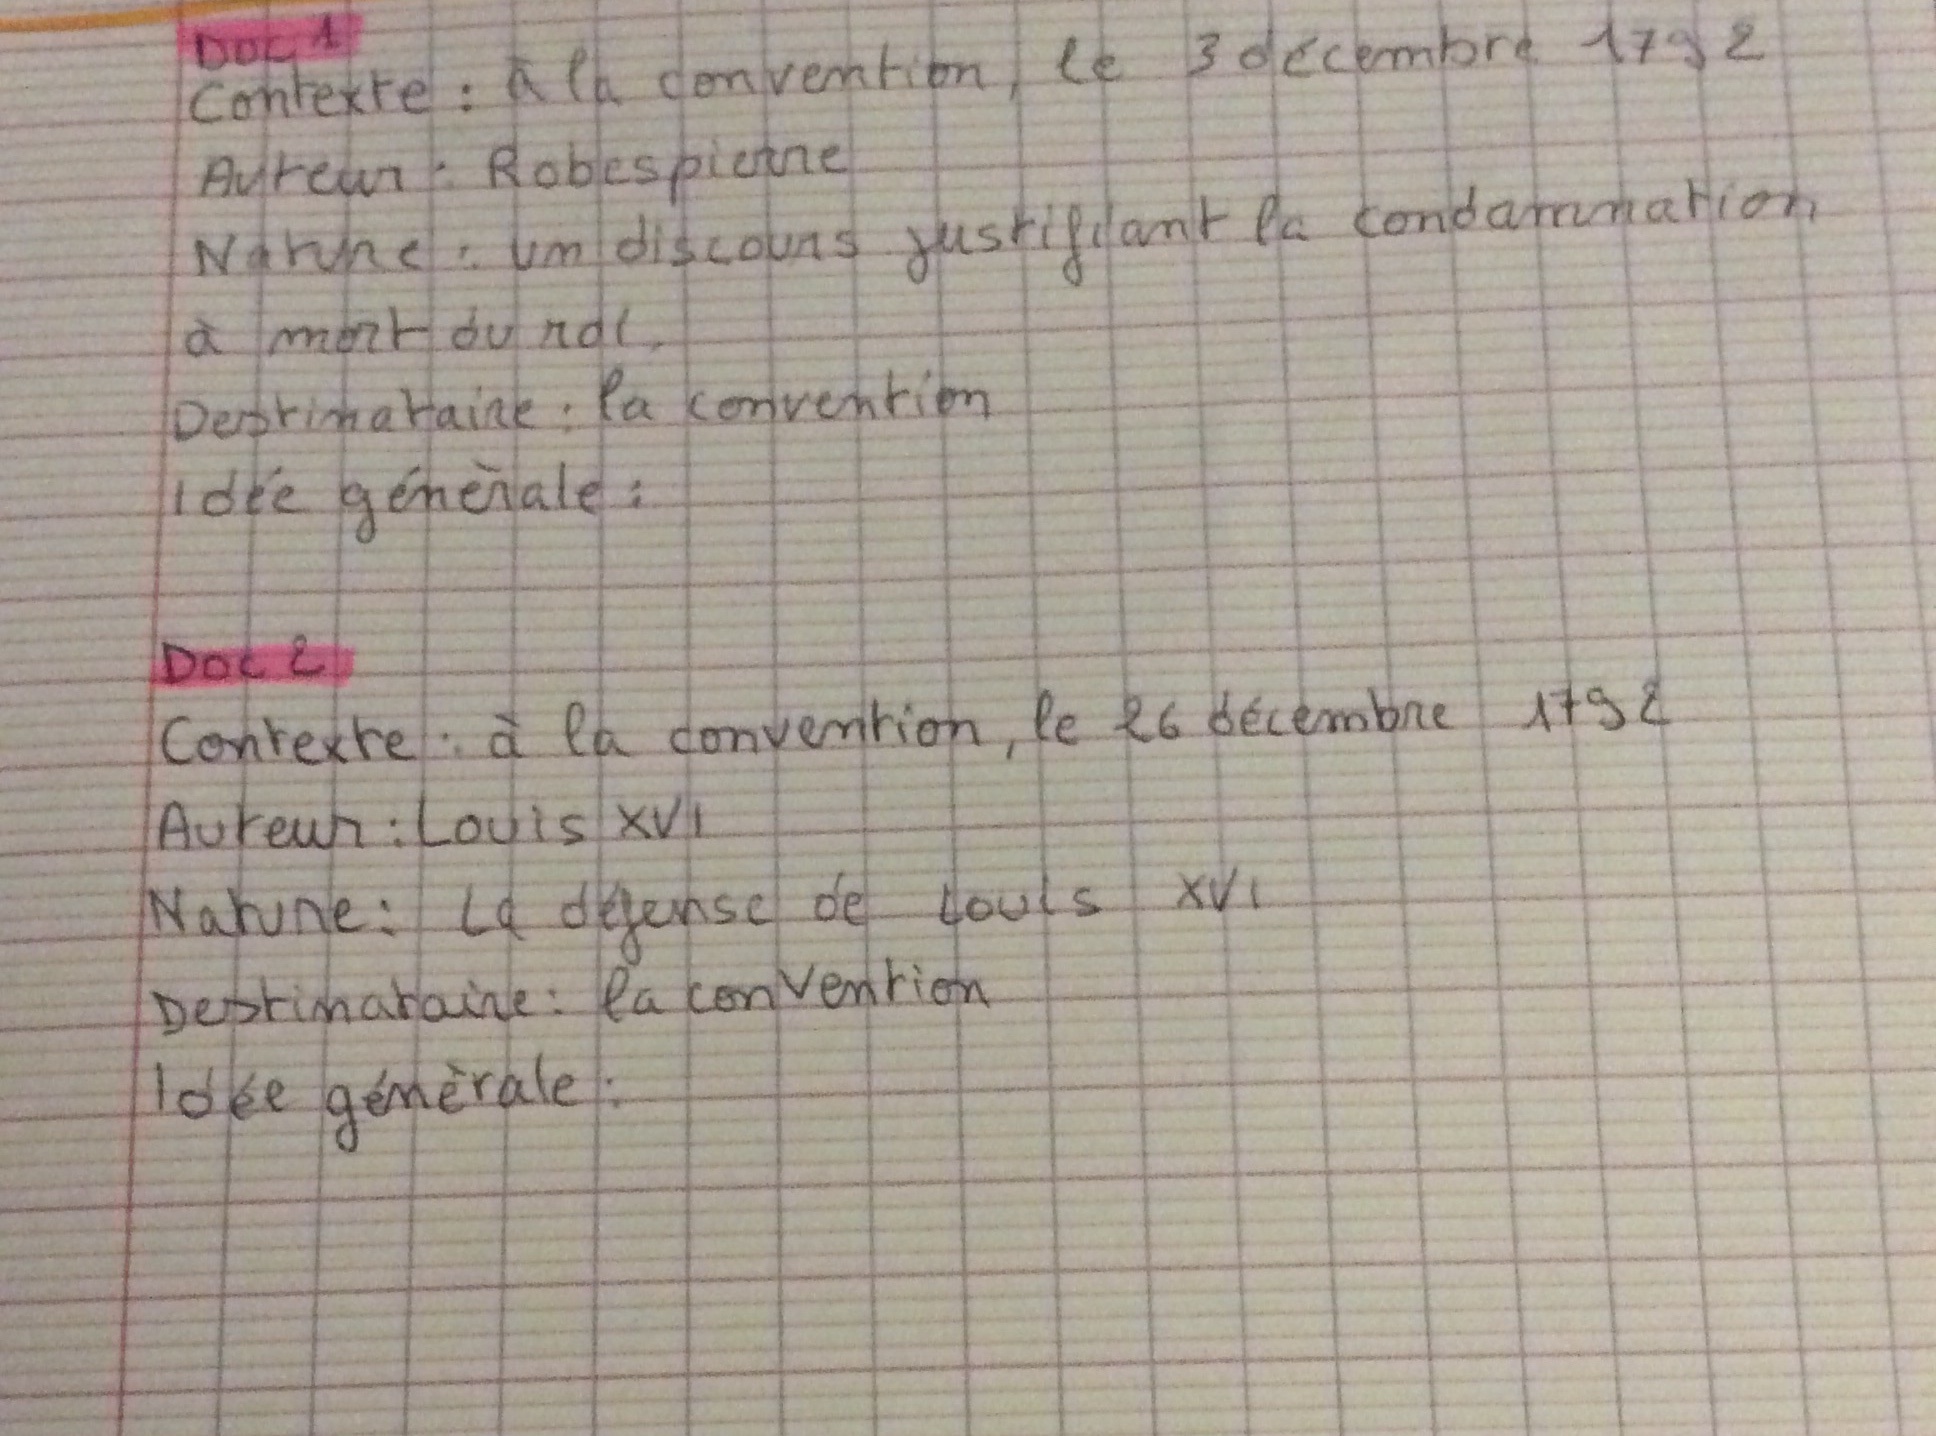 Doc 1
Contexte : à la convention, le 3 décembre 1792
Auteur : Robespierre
Nature : un discours justifiant la condamnation
à mort du roi.
Destinataire : la convention
Idée générale :
Doc 2
Contexte : à la convention, le 26 décembre 1792
Auteur : Louis XVI
Nature : La défense de Louis XVI
Destinataire : la convention
Idée générale :